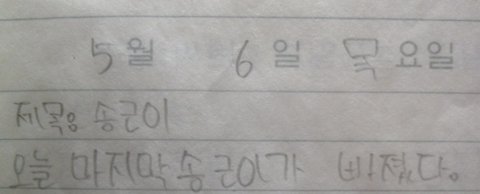 5월 6일 목요일
제목: 송근이
오늘 마지막 송근이가 빠졌다.